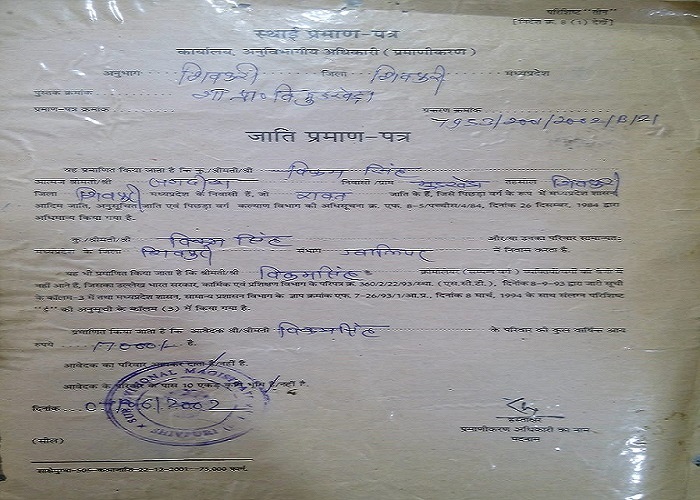 परिशिष्ट "तीन"
[निर्देश क्र. 8 (1) देखें]
स्थाई प्रमाण-पत्र
कार्यालय, अनुविभागीय अधिकारी (प्रमाणीकरण)
अनुभाग शिवपुरी जिला शिवपुरी मध्यप्रदेश
पुस्तक क्रमांक
प्रमाण-पत्र क्रमांक प्रकरण क्रमांक
7953/2001/2002/B/21
जाति प्रमाण-पत्र
यह प्रमाणित किया जाता है कि कु./श्रीमती/श्री विक्रम सिंह
आत्मज श्रीमती/श्री जगदीश निवासी/ग्राम तहसील शिवपुरी
जिला शिवपुरी मध्यप्रदेश के निवासी हैं, जो रावत जाति के हैं, जिसे पिछड़ा वर्ग के रूप में मध्यप्रदेश शासन,
आदिम जाति, अनुसूचित जाति एवं पिछड़ा वर्ग कल्याण विभाग की अधिसूचना क्र. एफ. 8-5/पच्चीस/4/84, दिनांक 26 दिसम्बर, 1984 द्वारा
अधिमान्य किया गया है.
कु./श्रीमती/श्री विक्रम सिंह और/या उनका परिवार सामान्यतः
मध्यप्रदेश के जिला शिवपुरी संभाग ग्वालियर में निवास करता है.
यह भी प्रमाणित किया जाता है कि श्रीमती/श्री विक्रमसिंह क्रीमीलेयर (सम्पन्न वर्ग)
नहीं आते हैं, जिसका उल्लेख भारत सरकार, कार्मिक एवं प्रशिक्षण विभाग के परिपत्र क्र. 360/2/22/93/स्था. (एस.सी.टी.), दिनांक 8-9-93 द्वारा जारी सूची
के कॉलम-3 में तथा मध्यप्रदेश शासन, सामान्य प्रशासन विभाग के ज्ञाप क्रमांक एफ. 7-26/93/1/आ.प्र., दिनांक 8 मार्च, 1994 के साथ संलग्न परिशिष्ट
की अनुसूची के कॉलम (3) में किया गया है.
प्रमाणित किया जाता है कि आवेदक श्री/श्रीमती विक्रमसिंह के परिवार की कुल वार्षिक आय
रुपये 17000/- है.
आवेदक का परिवार आयकर दाता है/नहीं है.
आवेदक के परिवार के पास 10 एकड़ भूमि है/नहीं है.
SUB DIVISIONAL MAGISTRATE
दिनांक 2002
हस्ताक्षर
प्रमाणीकरण अधिकारी का नाम
पदनाम
(सील)
22-12-2001-75,000 फार्म.